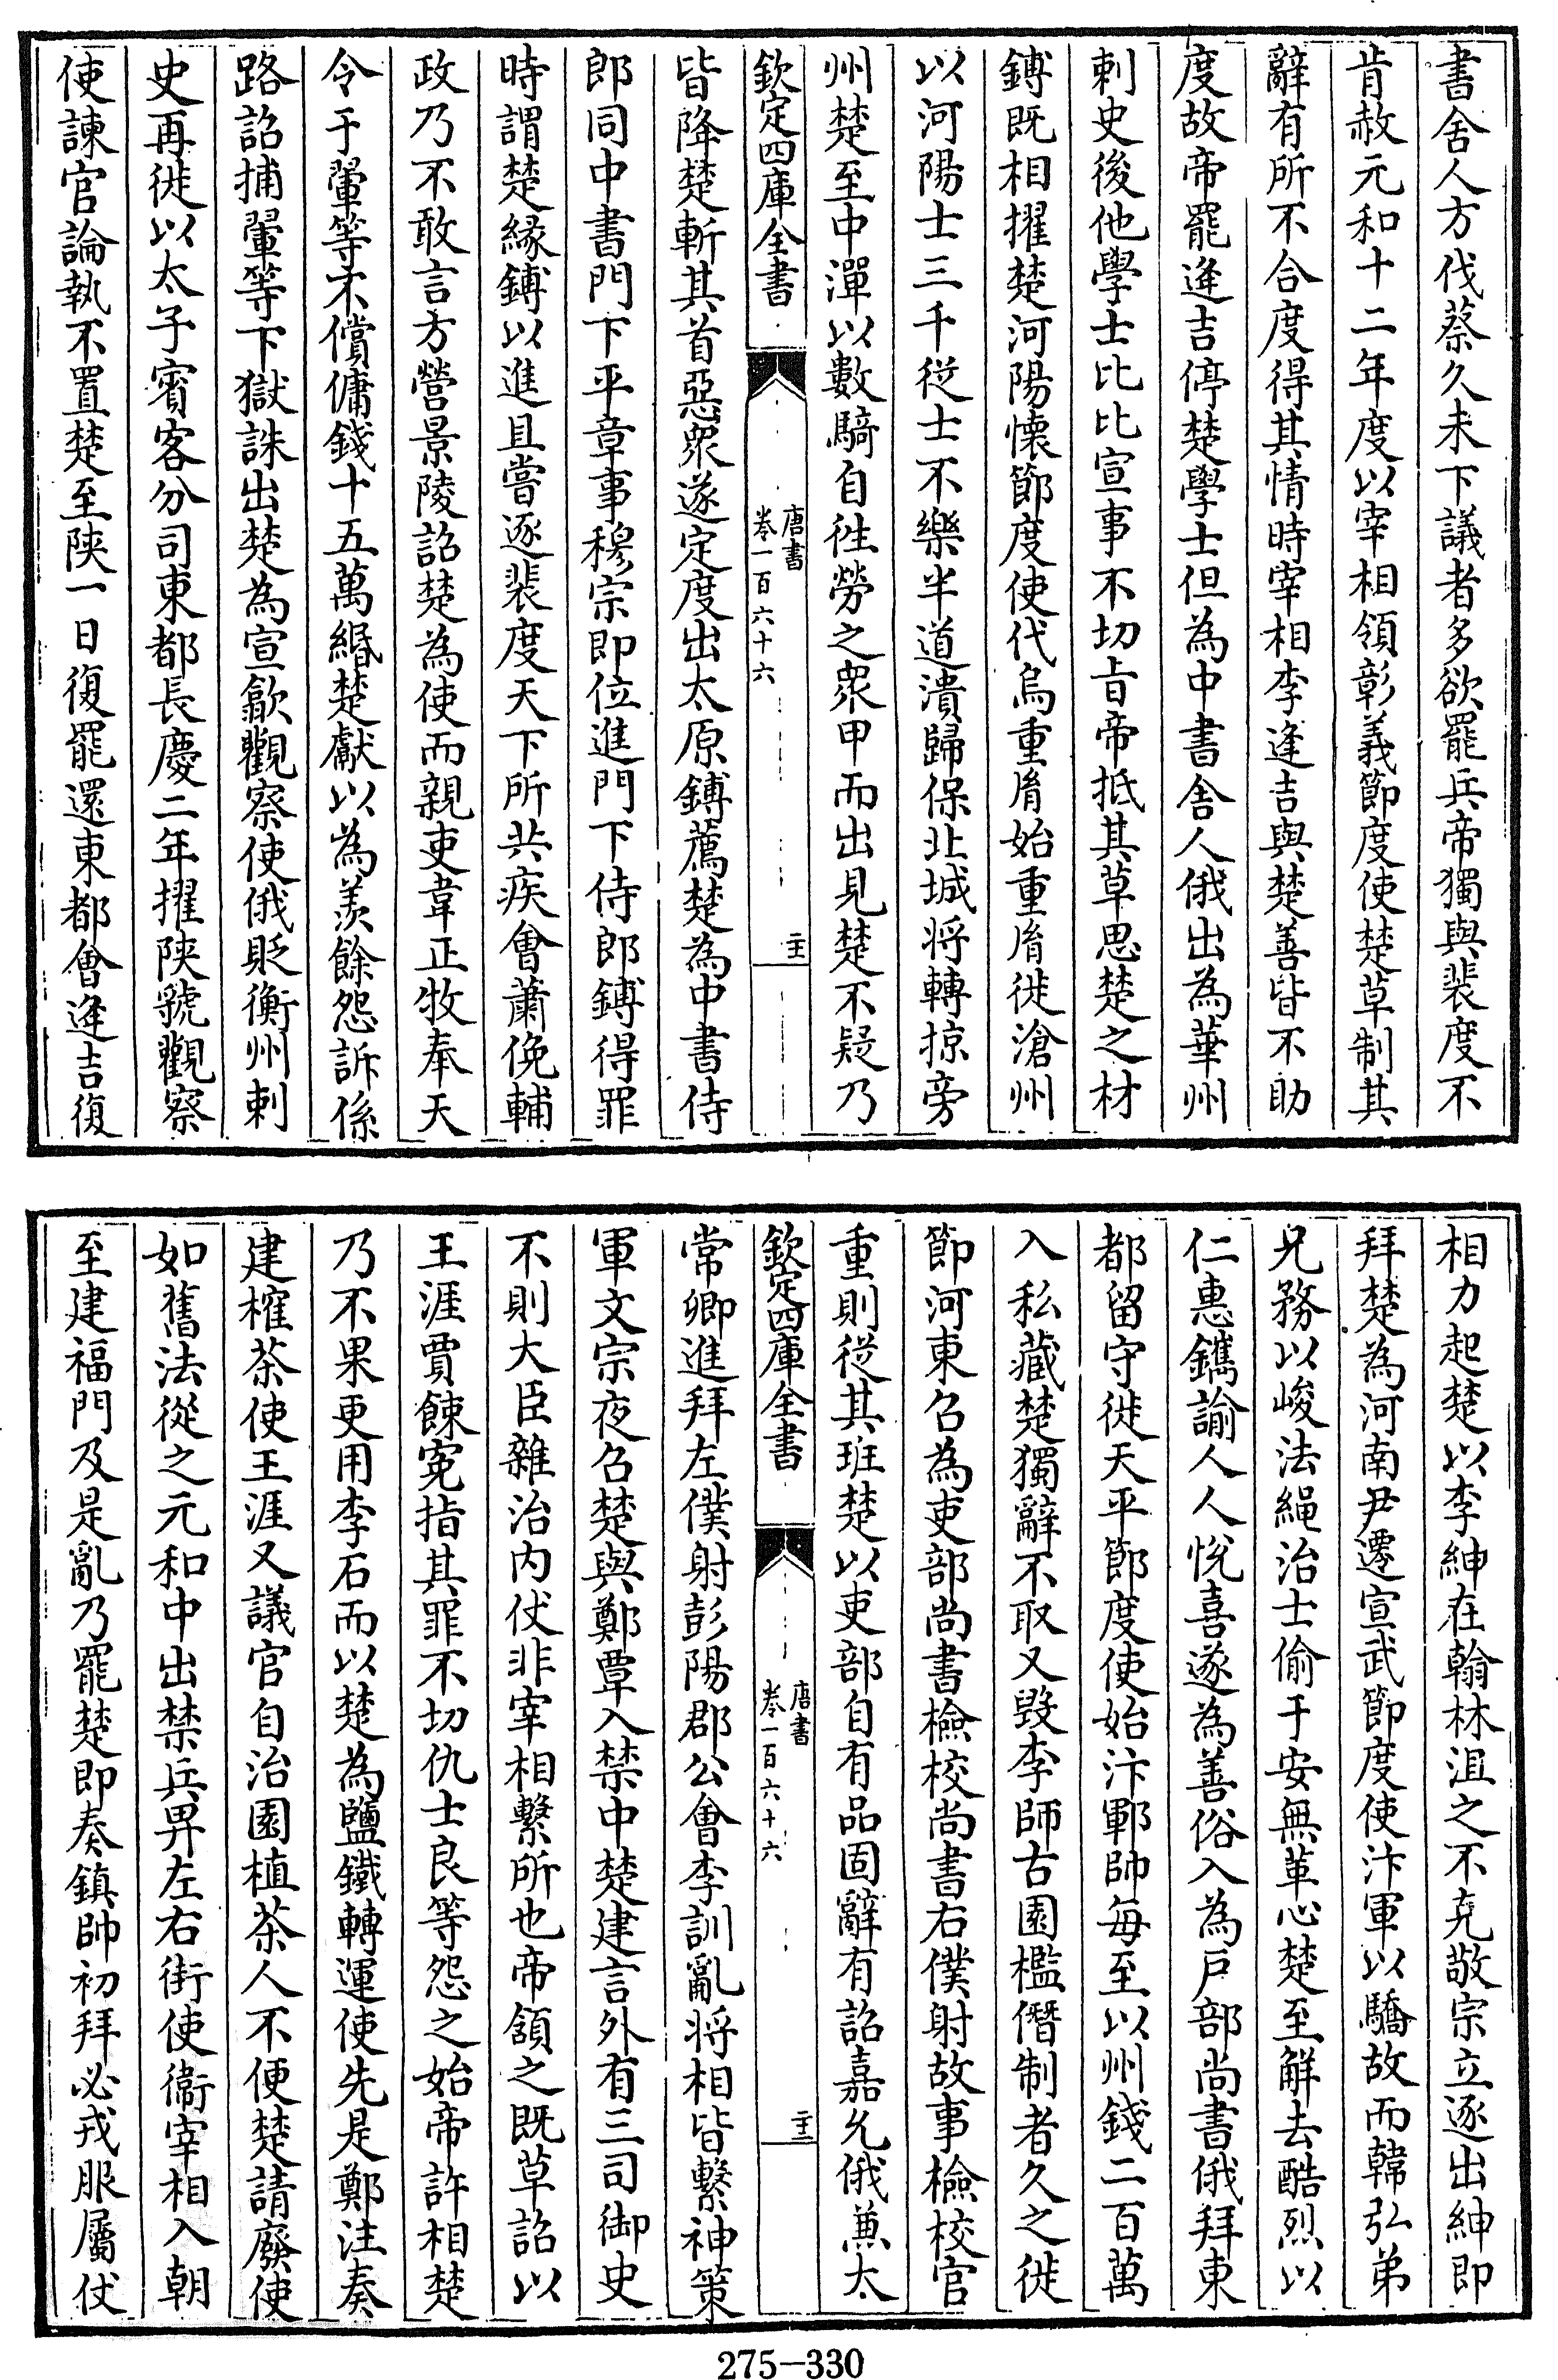 書舍人方伐蔡久未下議者多欲罷兵帝獨與裴度不
肯赦元和十二年度以宰相領彰義節度使楚草制其
辭有所不合度得其情時宰相李逢吉與楚善皆不助
度故帝罷逢吉停楚學士但為中書舍人俄出為華州
刺史後他學士比比宣事不切旨帝抵其草思楚之材
鎛既相擢楚河陽懐節度使代烏重𦙍始重𦙍徙滄州
以河陽士三千從士不樂半道潰歸保北城将轉掠旁
州楚至中潬以數騎自徃勞之眾甲而出見楚不疑乃
欽定四庫全書
唐書
卷一百六十六
二十
皆降楚斬其首惡眾遂定度出太原鎛薦楚為中書侍
郎同中書門下平章事穆宗即位進門下侍郎鎛得罪
時謂楚縁鎛以進且嘗逐裴度天下所共疾會蕭俛輔
政乃不敢言方營景陵詔楚為使而親吏韋正牧奉天
令于翬等不償傭錢十五萬緡楚獻以為羨餘怨訴係
路詔捕翬等下獄誅出楚為宣歙觀察使俄貶衡州刺
史再徙以太子賓客分司東都長慶二年擢陜虢觀察
使諫官論執不置楚至陜一日復罷還東都會逢吉復
相力起楚以李紳在翰林沮之不克敬宗立逐出紳即
拜楚為河南尹遷宣武節度使汴軍以驕故而韓弘弟
兄務以峻法繩治士偷于安無革心楚至解去酷烈以
仁惠鐫諭人人悅喜遂為善俗入為戶部尚書俄拜東
都留守徙天平節度使始汴鄆帥每至以州錢二百萬
入私藏楚獨辭不取又毀李師古園檻僭制者久之徙
節河東召為吏部尚書檢校尚書右僕射故事檢校官
重則從其班楚以吏部自有品固辭有詔嘉允俄兼太
欽定四庫全書
唐書
卷一百六十六
二十一
常卿進拜左僕射彭陽郡公會李訓亂将相皆繫神策
軍文宗夜召楚與鄭覃入禁中楚建言外有三司御史
不則大臣雜治内仗非宰相繫所也帝頷之既草詔以
王涯賈餗寃指其罪不切仇士良等怨之始帝許相楚
乃不果更用李石而以楚為鹽鐵轉運使先是鄭注奏
建榷茶使王涯又議官自治園植茶人不便楚請廢使
如舊法從之元和中出禁兵畀左右街使衞宰相入朝
至建福門及是亂乃罷楚即奏鎮帥初拜必戎服屬仗
275-330